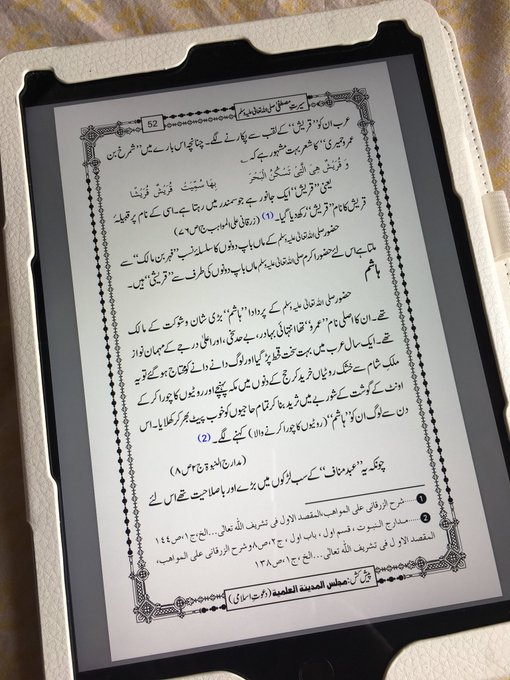 سیرتِ مصطفی صلی اللہ تعالیٰ علیہ وسلم
52
عرب ان کو ’’قریش‘‘ کے لقب سے پکارنے لگے۔ چنانچہ اس بارے میں ’’شمرخ بن
عمرو حمیری‘‘ کا شعر بہت مشہور ہے کہ ؎
وَ قُرَيْشٌ هِيَ الَّتِيْ تَسْكُنُ الْبَحْرَ بِهَا سُمِّيَتْ قُرَيْشٌ قُرَيْشًا
یعنی ’’قریش‘‘ ایک جانور ہے جو سمندر میں رہتا ہے۔ اسی کے نام پر قبیلۂ
قریش کا نام ’’قریش‘‘ رکھ دیا گیا۔ (1) (زرقانی علی المواہب ج۱ص۷۶)
حضور صلی اللہ تعالیٰ علیہ وسلم کے ماں باپ دونوں کا سلسلۂ نسب ’’فہر بن مالک‘‘ سے
ملتا ہے اس لئے حضور اکرم صلی اللہ تعالیٰ علیہ وسلم ماں باپ دونوں کی طرف سے ’’قریشی‘‘ ہیں۔
ہاشم
حضور صلی اللہ تعالیٰ علیہ وسلم کے پردادا ’’ہاشم‘‘ بڑی شان و شوکت کے مالک
تھے۔ ان کا اصلی نام ’’عمرو‘‘ تھا انتہائی بہادر، بے حد سخی، اور اعلیٰ درجے کے مہمان نواز
تھے۔ ایک سال عرب میں بہت سخت قحط پڑ گیا اور لوگ دانے دانے کو محتاج ہو گئے تو یہ
ملکِ شام سے خشک روٹیاں خرید کر حج کے دنوں میں مکہ پہنچے اور روٹیوں کا چورا کر کے
اونٹ کے گوشت کے شوربے میں ثرید بنا کر تمام حاجیوں کو خوب پیٹ بھر کر کھلایا۔ اس
دن سے لوگ ان کو ’’ہاشم‘‘ (روٹیوں کا چورا کرنے والا) کہنے لگے۔ (2)
(مدارج النبوۃ ج۲ص۸)
چونکہ یہ ’’عبدمناف‘‘ کے سب لڑکوں میں بڑے اور باصلاحیت تھے اس لئے
1.....شرح الزرقانی علی المواهب،المقصد الاول فی تشریف اللہ تعالی...الخ،ج۱،ص۱۴۴
2.....مدارج النبوت ، قسم اول ، باب اول ، ج۲،ص۸ و شرح الزرقانی علی المواهب،
المقصد الاول فی تشریف اللہ تعالی...الخ،ج۱،ص۱۳۸
پیش کش: مجلس المدینة العلمیة (دعوتِ اسلامی)